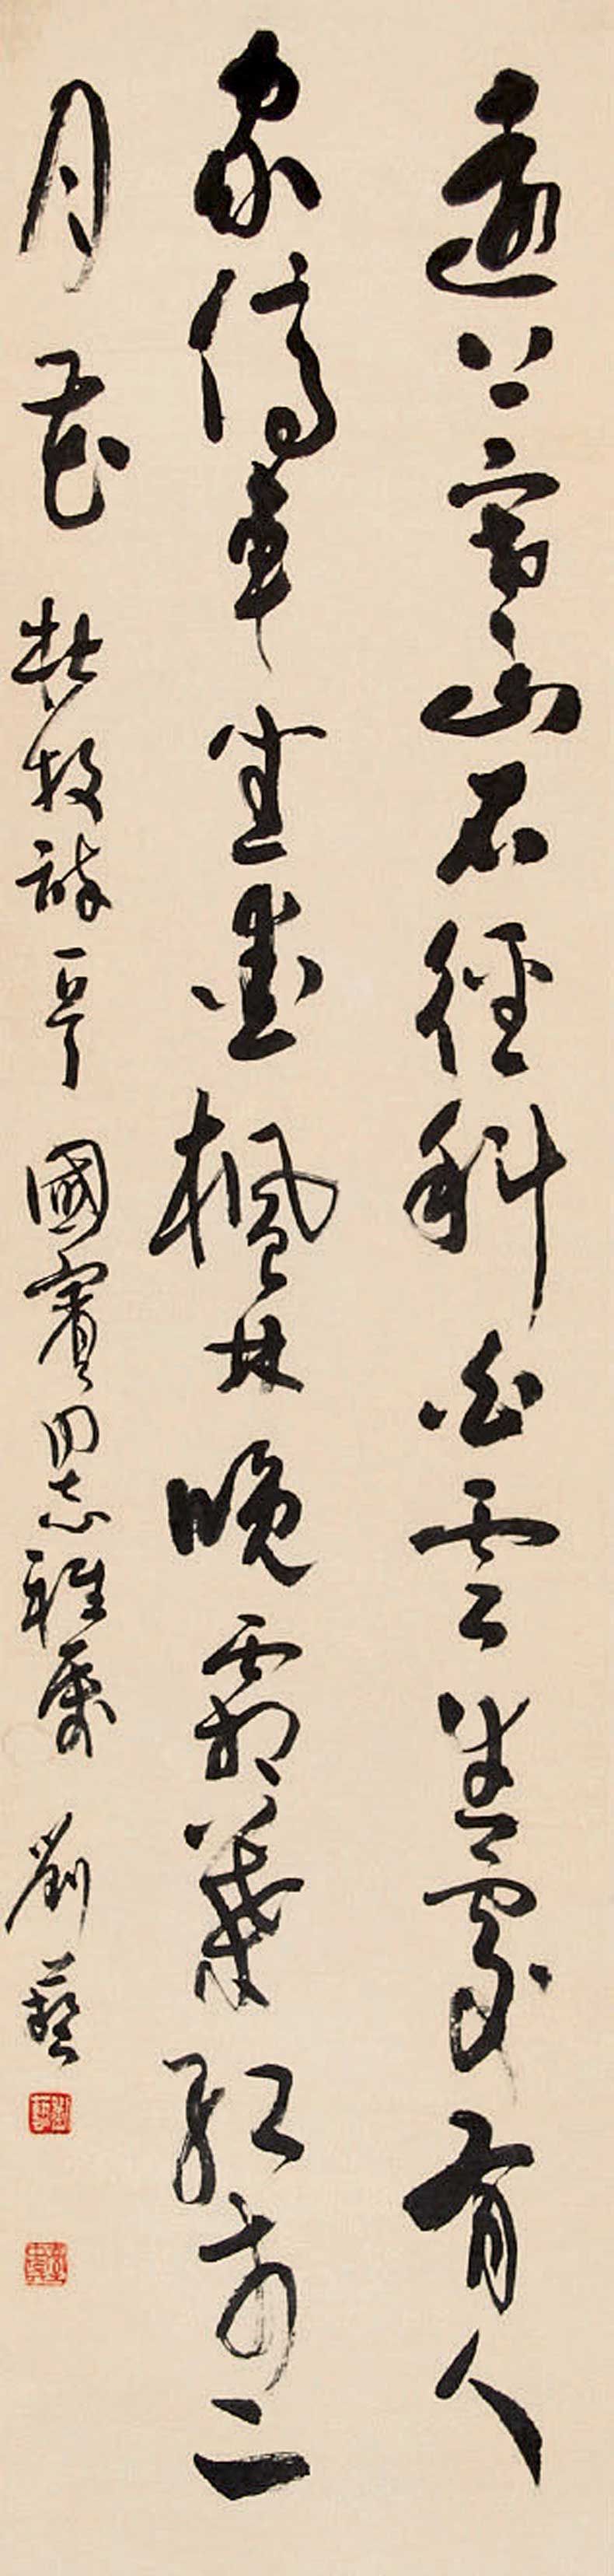 遠上寒山石徑斜白雲生處有人
家停車坐愛楓林晚霜葉紅於二
月花 杜牧詩一首 國賓同志雅屬 劉藝